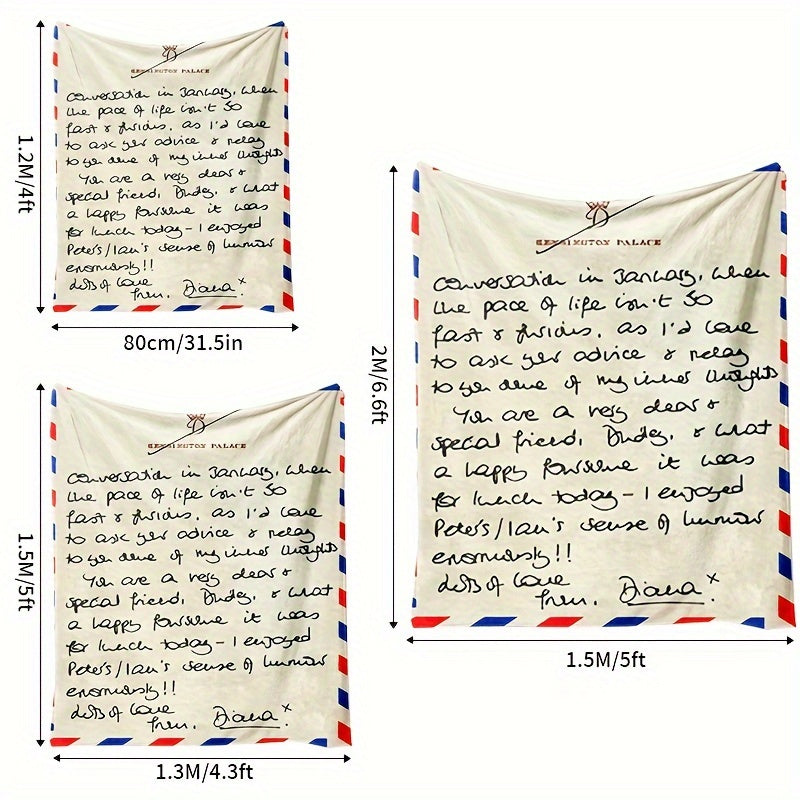 KENSINGTON PALACE
conversation in January, when
the pace of life isn't so
fast & furious, as I'd love
to ask your advice & relay
to you some of my inner thoughts
You are a very dear &
special friend, Dudley, & what
a happy foursome it was
for lunch today - I enjoyed
Peter's/Ian's sense of humour
enormously!!
Lots of love
from, Diana x
1.2M/4ft
80cm/31.5in
KENSINGTON PALACE
conversation in January, when
the pace of life isn't so
fast & furious, as I'd love
to ask your advice & relay
to you some of my inner thoughts
You are a very dear &
special friend, Dudley, & what
a happy foursome it was
for lunch today - I enjoyed
Peter's/Ian's sense of humour
enormously!!
Lots of love
from, Diana x
1.5M/5ft
1.3M/4.3ft
KENSINGTON PALACE
conversation in January, when
the pace of life isn't so
fast & furious, as I'd love
to ask your advice & relay
to you some of my inner thoughts
You are a very dear &
special friend, Dudley, & what
a happy foursome it was
for lunch today - I enjoyed
Peter's/Ian's sense of humour
enormously!!
Lots of love
from, Diana x
2M/6.6ft
1.5M/5ft